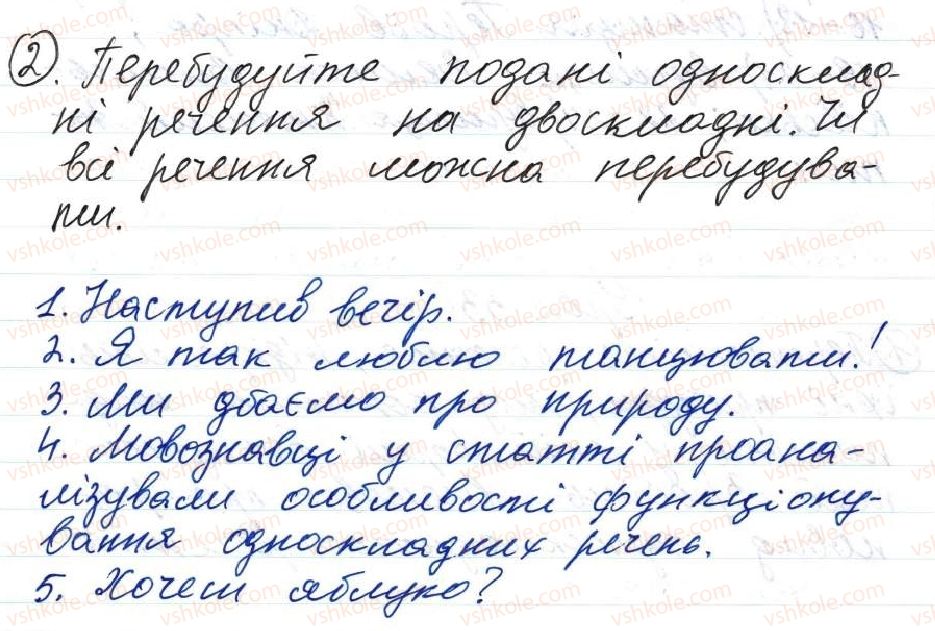 2. Перебудуйте подані односклад-
ні речення на двоскладні. Чи
всі речення можна перебудува-
ти.
1. Наступив вечір.
2. Я так люблю танцювати!
3. Ми дбаємо про природу.
4. Мовознавці у статті проана-
лізували особливості функціону-
вання односкладних речень.
5. Хочеш яблуко?